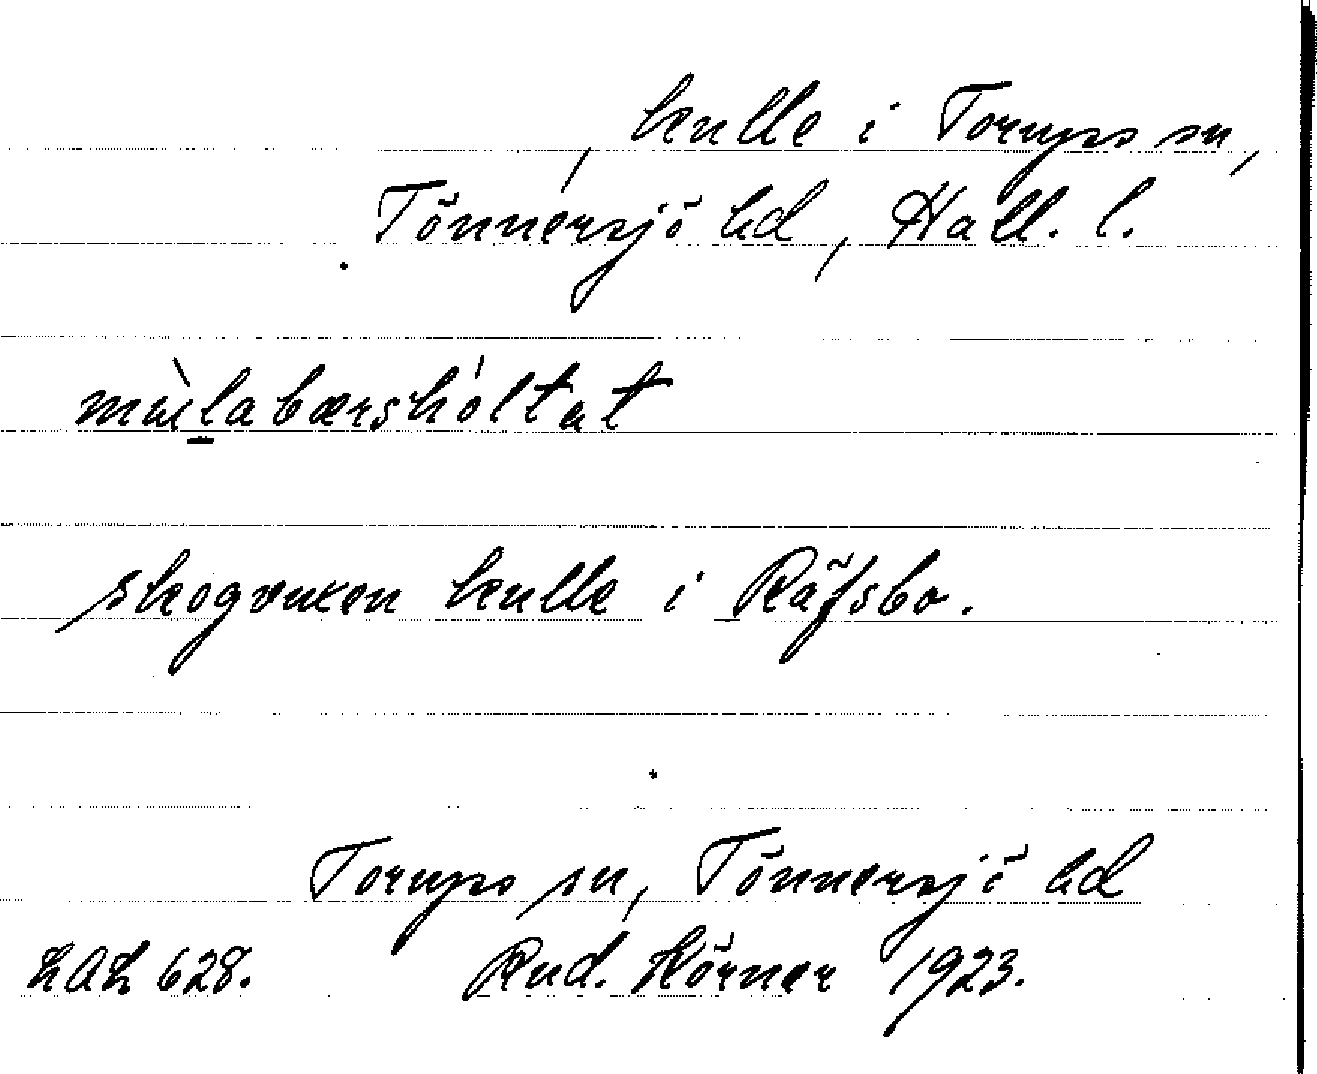 , kulle i Torups sn,
Tönnersjö hd, Hall. l.
mùlabærshóltat
skogvuxen kulle i Räfsbo.
Torups sn, Tönnersjö hd
LAL 628. Rud. Körner 1923.